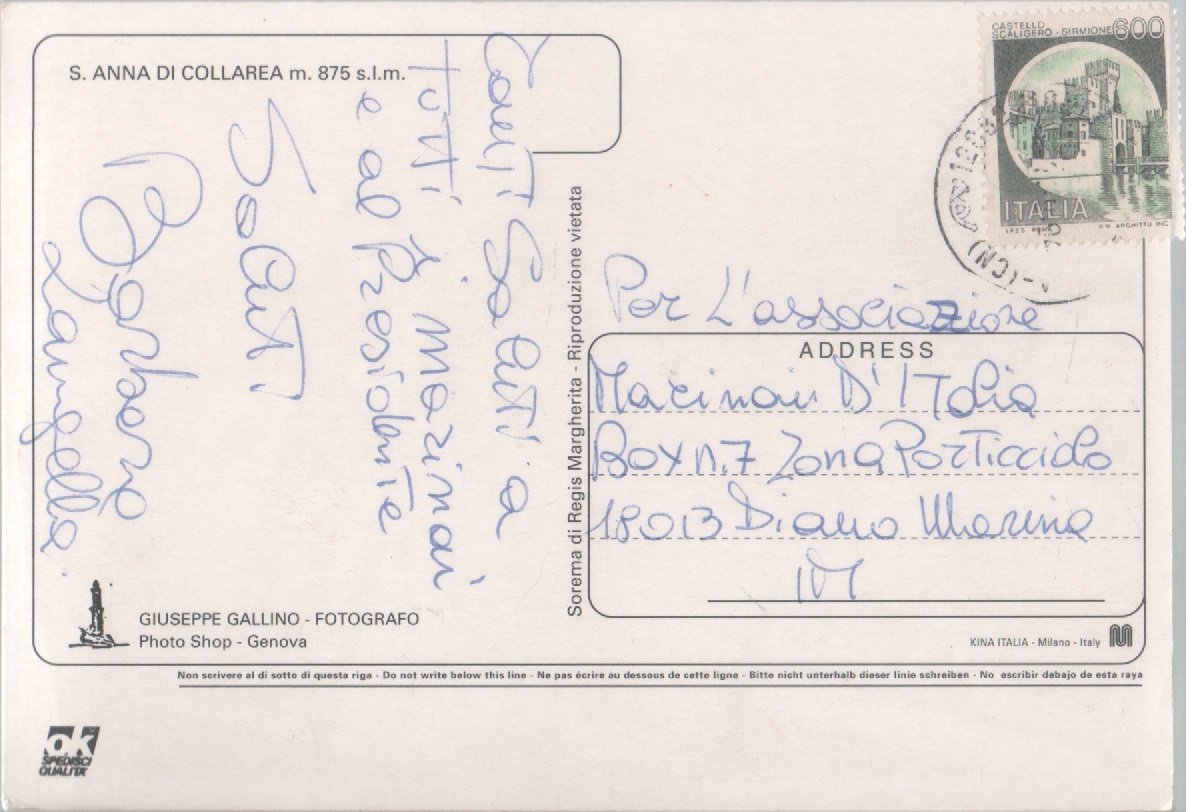 S. ANNA DI COLLAREA m. 875 s.l.m.
Cari Saluti a
tutti i Marinai
e al Presidente
Saluti
Barbero
GIUSEPPE GALLINO - FOTOGRAFO
Photo Shop - Genova
Sorema di Regis Margherita - Riproduzione vietata
CASTELLO
SCALIGERO - SIRMIONE 600
ITALIA
(CN)
Per L'associazione
ADDRESS
Marinai D'Italia
Box n.7 Zona Porticciolo
18013 Diano Marina
IM
KINA ITALIA - Milano - Italy
Non scrivere al di sotto di questa riga - Do not write below this line - Ne pas écrire au dessous de cette ligne - Bitte nicht unterhalb dieser linie schreiben - No escribir debajo de esta raya
ok
SPEDISCI
QUALITA'